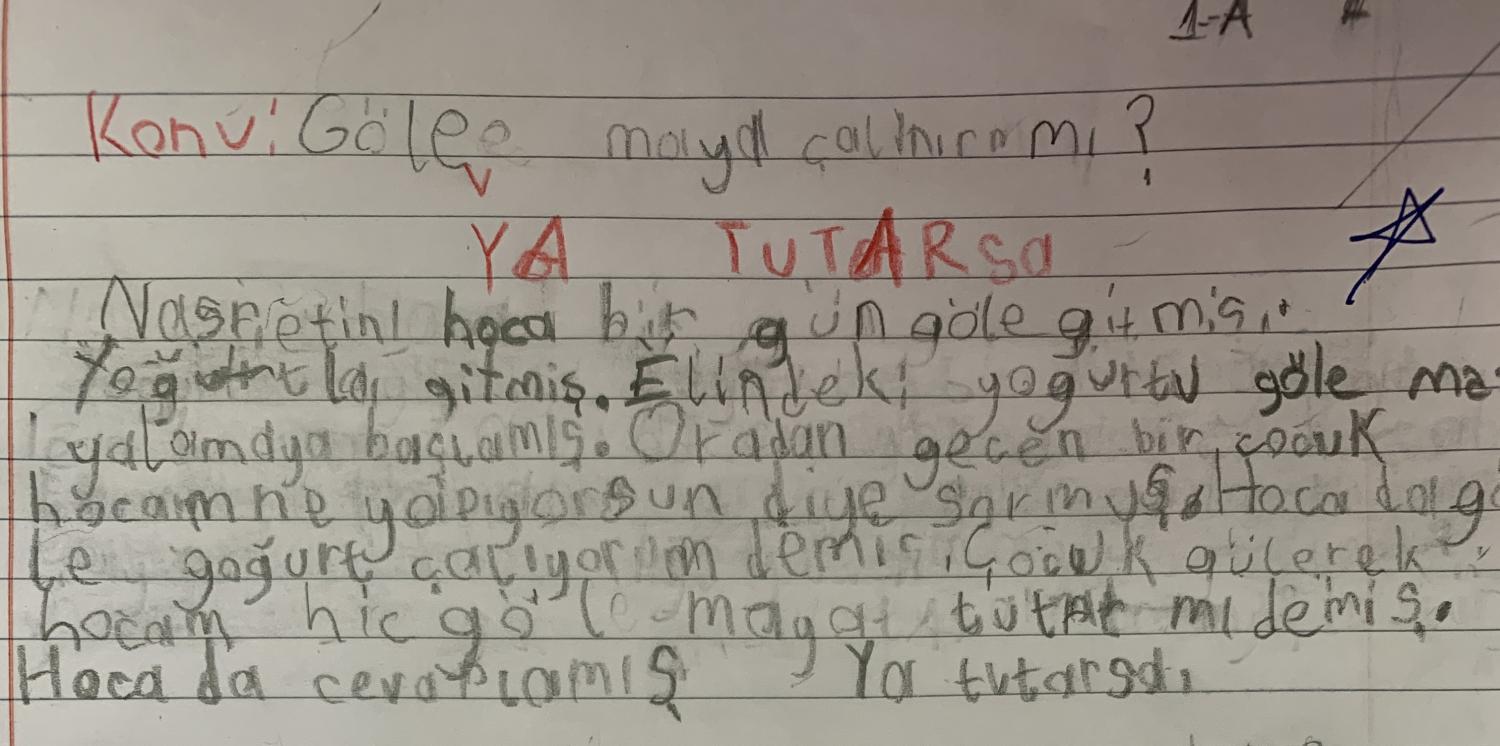 1-A
Konu: Göle maya çalınırmı?
YA TUTARSa
Nasretinl hoca bir gün göle gitmiş.
Yoğurtla gitmiş. Elindeki yogurtu göle ma
yalamaya başlamış. Oradan geçen bir çocuk
hocam ne yapıyorsun diye sormuş. Hoca da gö
le yoğurt çalıyorum demiş. Çocuk gülerek
hocam hiç göl maya tutar mı demiş.
Hoca da cevaplamış Ya tutarsa.